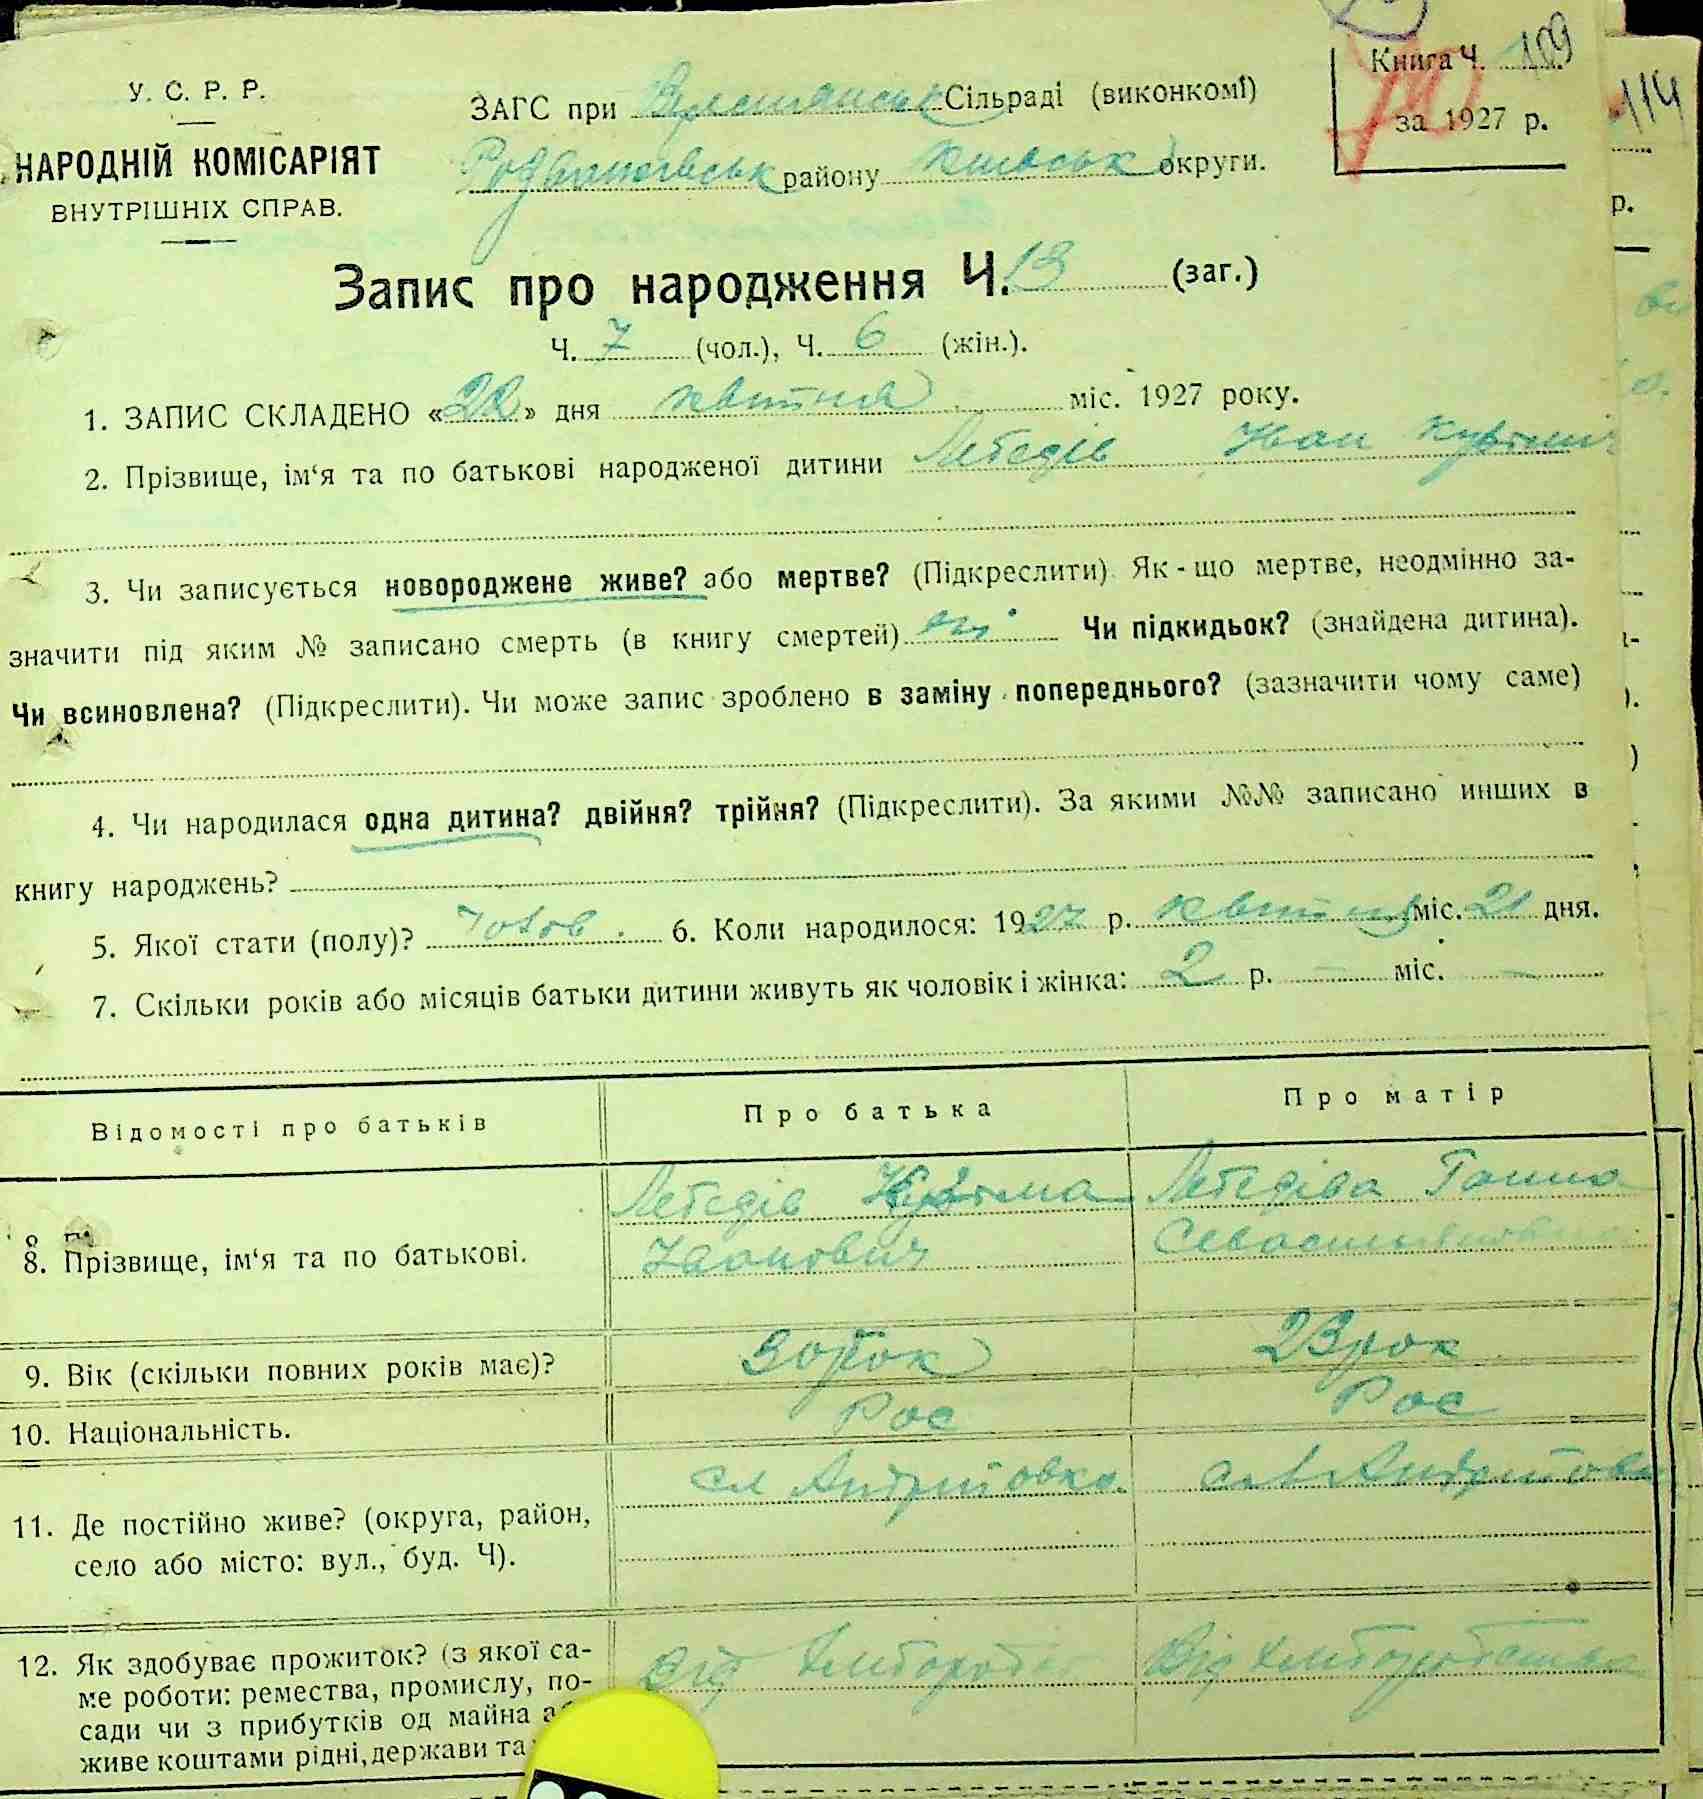 У. С. Р. Р.
НАРОДНІЙ КОМІСАРІЯТ
ВНУТРІШНІХ СПРАВ.
ЗАГС при Сільраді (виконкомі)
району округи.
Книга Ч. 109
за 1927 р.
70
114
р.
Запис про народження Ч. 13 (заг.)
Ч. 7 (чол.), Ч. 6 (жін.).
1. ЗАПИС СКЛАДЕНО «22» дня квітня міс. 1927 року.
2. Прізвище, ім‘я та по батькові народженої дитини Лебедів Іван
3. Чи записується новороджене живе? або мертве? (Підкреслити). Як-що мертве, неодмінно за-
значити під яким № записано смерть (в книгу смертей) ні Чи підкидьок? (знайдена дитина).
Чи всиновлена? (Підкреслити). Чи може запис зроблено в заміну попереднього? (зазначити чому саме)
4. Чи народилася одна дитина? двійня? трійня? (Підкреслити). За якими №№ записано инших в
книгу народжень?
5. Якої стати (полу)? 6. Коли народилося: 1927 р. квітня міс. 21 дня.
7. Скільки років або місяців батьки дитини живуть як чоловік і жінка: 2 р. — міс. —
Відомості про батьків Про батька Про матір
8. Прізвище, ім‘я та по батькові.
Лебедів Кузьма
Іванович
Лебедіва Ганна
9. Вік (скільки повних років має)? 30 рок 23 рок
10. Національність. Рос Рос
11. Де постійно живе? (округа, район,
село або місто: вул., буд. Ч).
сл
12. Як здобуває прожиток? (з якої са-
ме роботи: ремества, промислу, по-
сади чи з прибутків од майна
живе коштами рідні, держави та
Від
Від Хліборобства